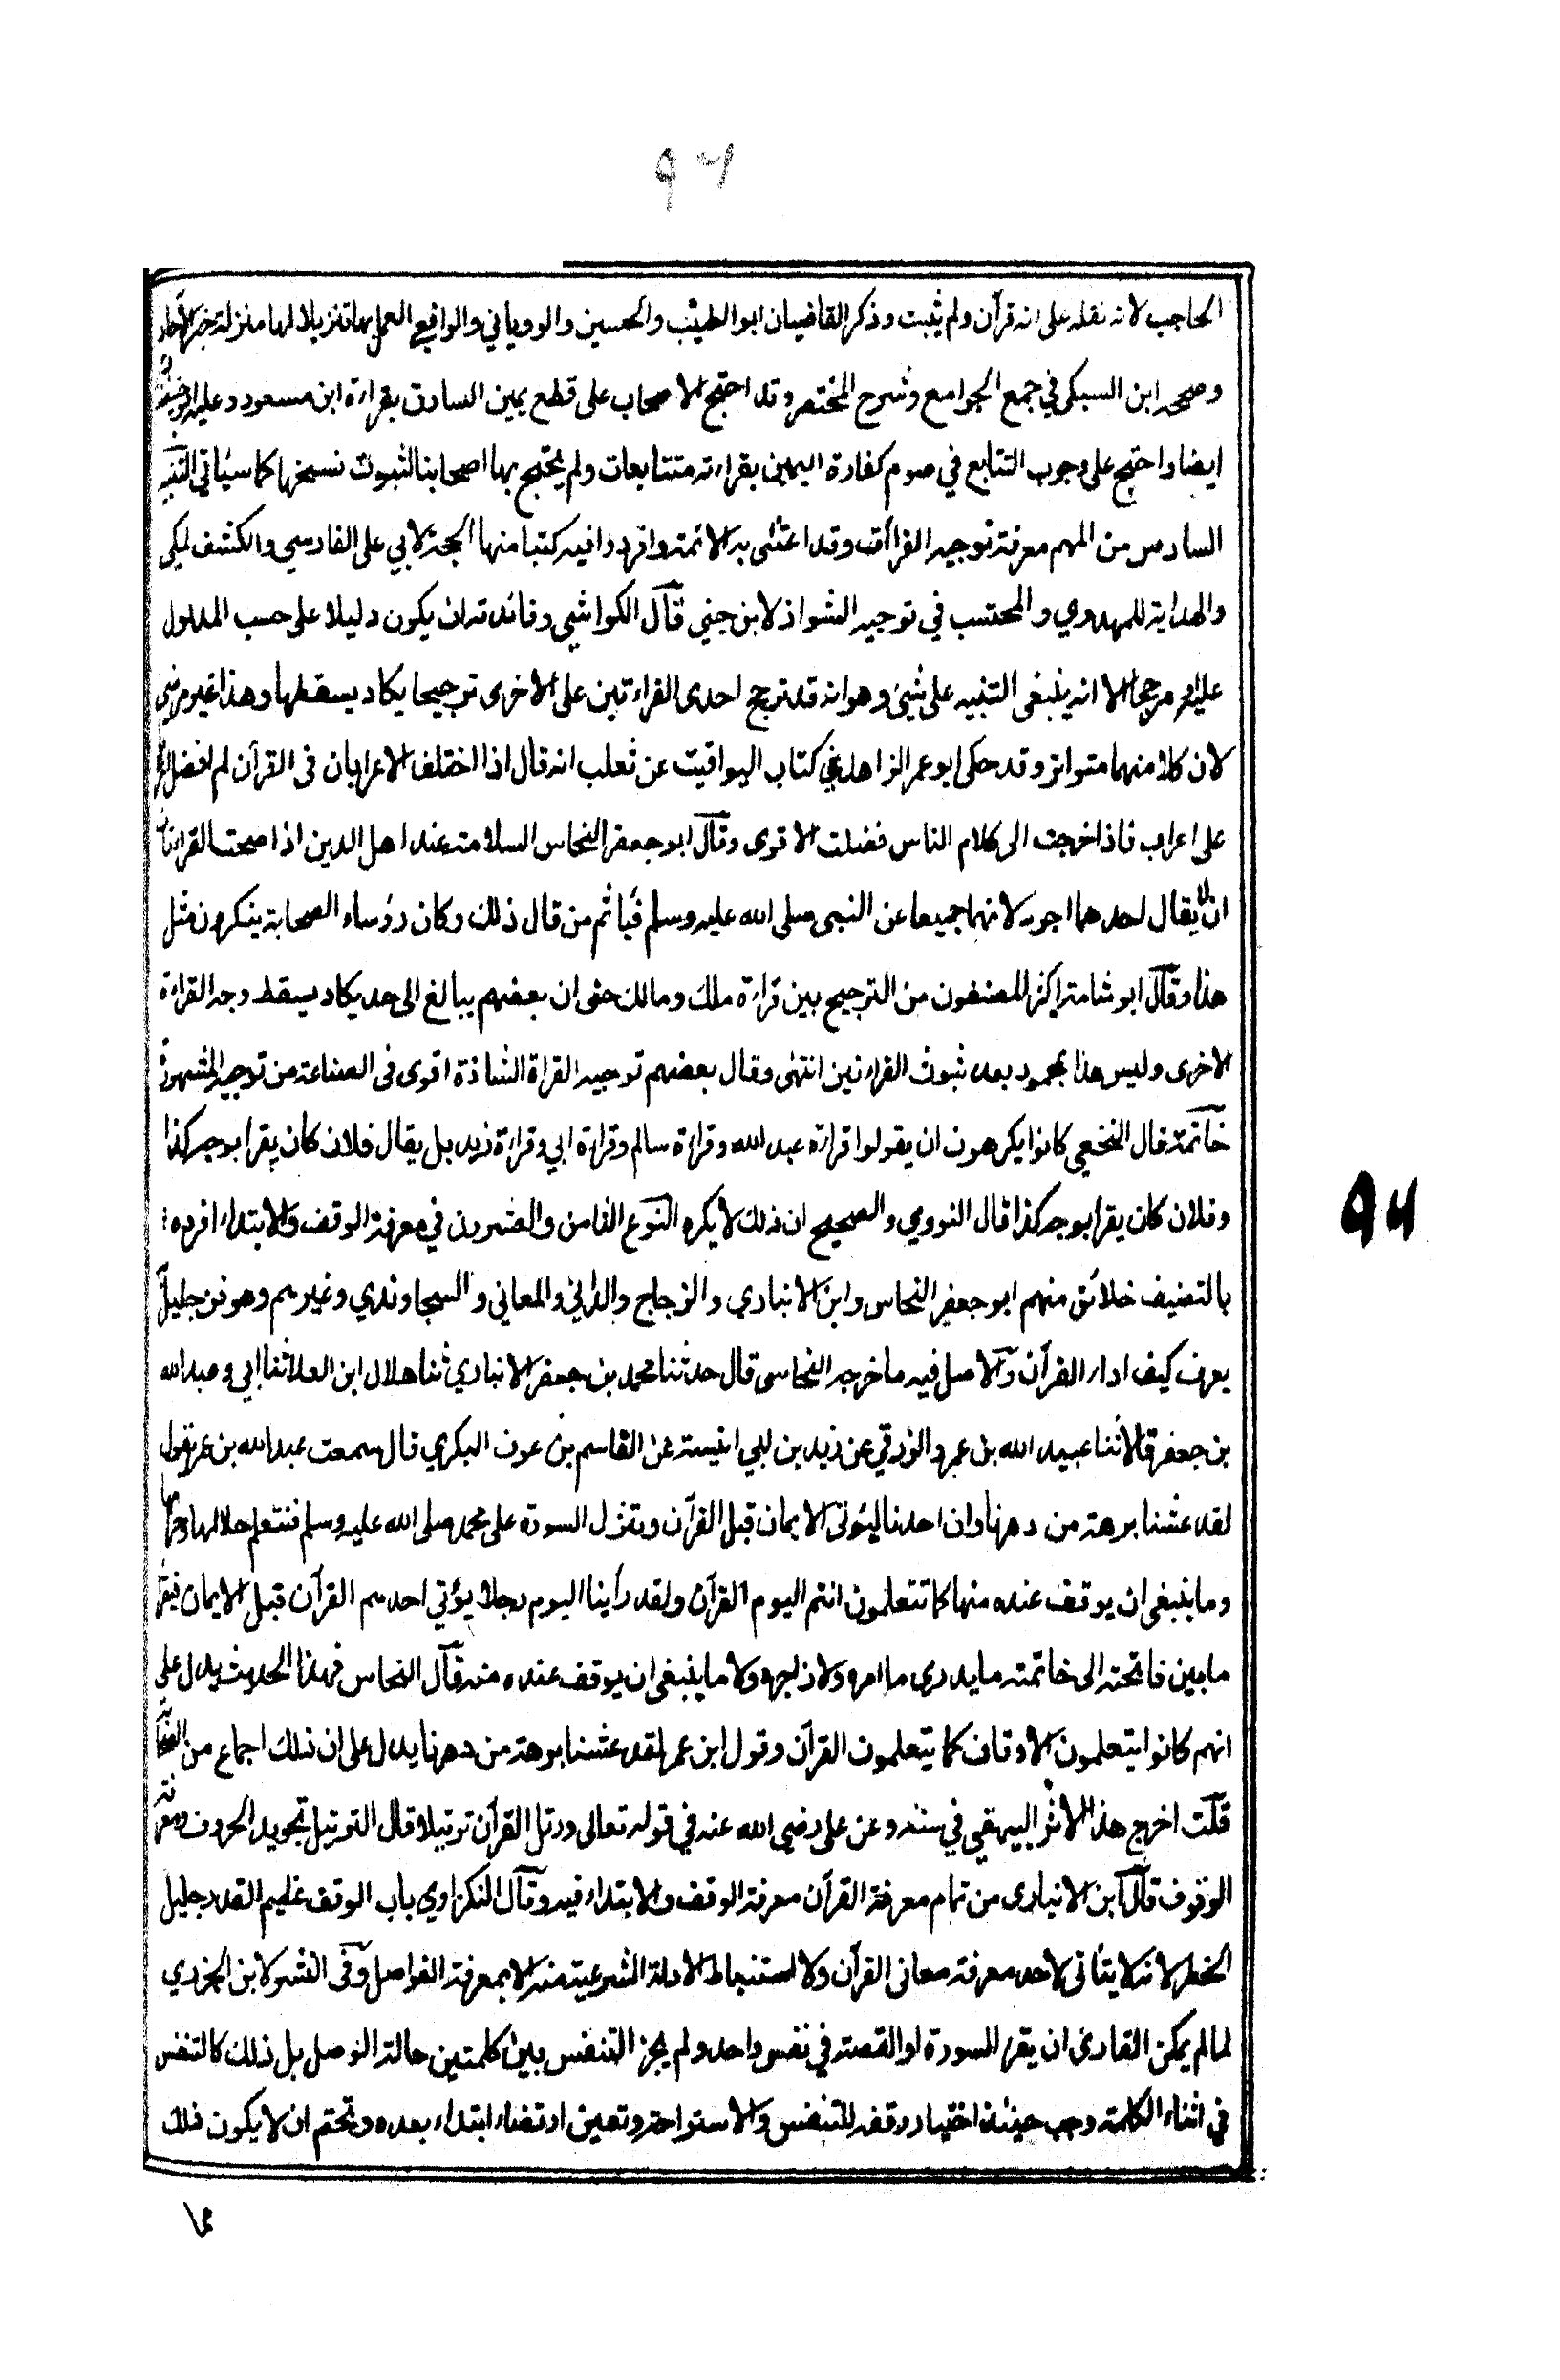 ٩٣
الحاجب لانه نقله على انه قرآن ولم يثبت وذكر القاضيان ابو الطيب والحسين والروياني والرافعي العمل بها تنزيلا لها منزلة خبر الآحاد
وصححه ابن السبكي في جمع الجوامع وشرح المختصر وقد احتج الاصحاب على قطع يمين السارق بقراءة ابن مسعود وعليه ابو حنيفة
ايضا واحتج على وجوب التتابع في صوم كفارة اليمين بقراءته متتابعات ولم يحتج بها اصحابنا لثبوت نسخها كما سيأتي التنبيه
السادس من المهم معرفة توجيه القراآت وقد اعتنى به الائمة وافردوا فيه كتبا منها الحجة لابي على الفارسي والكشف لمكي
والهداية للمهدوي والمحتسب في توجيه الشواذ لابن جني قال الكواشي وفائدته ان يكون دليلا على حسب المدلول
عليه او مرجحا الا انه ينبغى التنبيه على شئ وهو انه قد ترجح احدى القراءتين على الاخرى ترجيحا يكاد يسقطها وهذا غير مرضي
لان كلا منهما متواتر وقد حكى ابو عمر الزاهد في كتاب اليواقيت عن ثعلب انه قال اذا اختلف الاعرابان في القرآن لم افضل اعرابا
على اعراب فاذا خرجت الى كلام الناس فضلت الاقوى وقال ابو جعفر النحاس السلامة عند اهل الدين اذا صحت القراءتان
ان لا يقال احدهما اجود لانهما جميعا عن النبى صلى الله عليه وسلم فيأثم من قال ذلك وكان رؤساء الصحابة ينكرون مثل
هذا وقال ابو شامة اكثر المصنفون من الترجيح بين قراءة ملك ومالك حتى ان بعضهم يبالغ الى حد يكاد يسقط وجه القراءة
الاخرى وليس هذا بمحمود بعد ثبوت القراءتين انتهى وقال بعضهم توجيه القراة الشاذة اقوى فى الصناعة من توجيه المشهورة
خاتمة قال النخعي كانوا يكرهون ان يقولوا قراءة عبد الله وقراءة سالم وقراءة ابي وقراءة زيد بل يقال فلان كان يقرا بوجه كذا
وفلان كان يقرا بوجه كذا قال النووي والصحيح ان ذلك لا يكره النوع الثامن والعشرون في معرفة الوقف والابتداء افرده
بالتصنيف خلائق منهم ابو جعفر النحاس وابن الانباري والزجاج والداني والعماني والسجاوندي وغيرهم وهو فن جليل
يعرف كيف اداء القرآن والاصل فيه ما خرجه النحاس قال حدثنا محمد بن جعفر الانباري ثنا هلال ابن العلا ثنا ابي وعبد الله
بن جعفر قالا ثنا عبيد الله بن عمرو الزرقي عن زيد بن ابي انيسة عن القاسم بن عوف البكري قال سمعت عبد الله بن عمر يقول
لقد عشنا برهة من دهرنا وان احدنا ليؤتى الايمان قبل القرآن وتنزل السورة على محمد صلى الله عليه وسلم فنتعلم حلالها وحرامها
وما ينبغى ان يوقف عنده منها كما تتعلمون انتم اليوم القرآن ولقد رأينا اليوم رجلا يؤتي احدهم القرآن قبل الايمان فيقرا
ما بين فاتحته الى خاتمته ما يدرى ما امره ولا زاجره ولا ما ينبغى ان يوقف عنده منه قال النحاس فهذا الحديث يدل على
انهم كانوا يتعلمون الاوقاف كما يتعلمون القرآن وقول ابن عمر لقد عشنا برهة من دهرنا يدل على ان ذلك اجماع من الصحابة
قلت اخرج هذا الاثر البيهقي في سننه وعن على رضي الله عنه في قوله تعالى ورتل القرآن ترتيلا قال الترتيل تجويد الحروف ومعرفة
الوقوف قال ابن الانبارى من تمام معرفة القرآن معرفة الوقف والابتداء فيه وقال النكزاوي باب الوقف عظيم القدر جليل
الخطر لانه لا يتأتى لاحد معرفة معانى القرآن ولا استنباط الادلة الشرعية منه الا بمعرفة الفواصل وفى النشر لابن الجزري
لما لم يمكن القارئ ان يقرا السورة او القصة في نفس واحد ولم يجز التنفس بين كلمتين حالة الوصل بل ذلك كالتنفس
في اثناء الكلمة وجب حينئذ اختيار وقفه للتنفس والاستراحة وتعين ارتضاء ابتداء بعده وتحتم ان لا يكون ذلك
٩٣